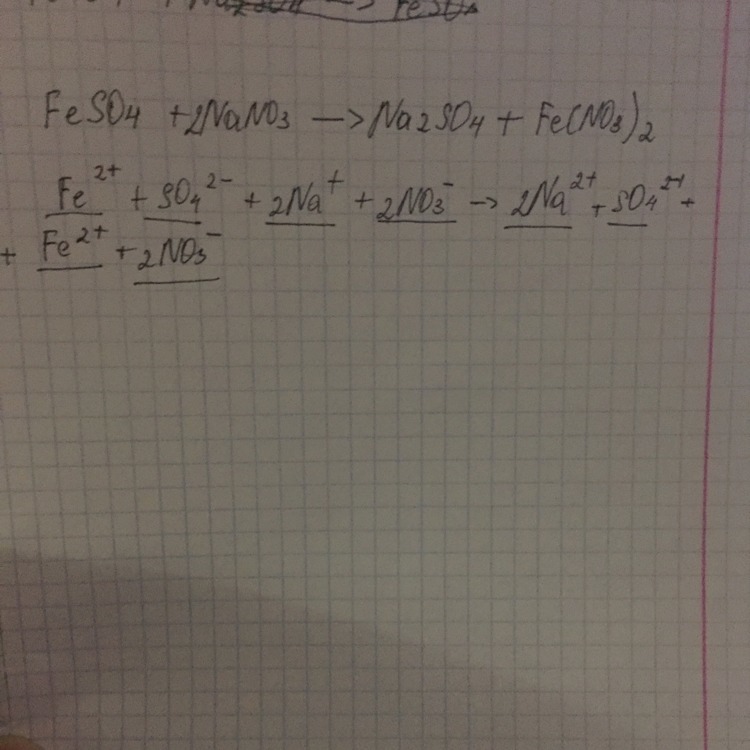 FeSO4 + 2NaNO3 —> Na2SO4 + Fe(NO3)2
Fe2+ + SO4 2- + 2Na+ + 2NO3- -> 2Na2+ + SO4 2- +
+ Fe2+ + 2NO3-